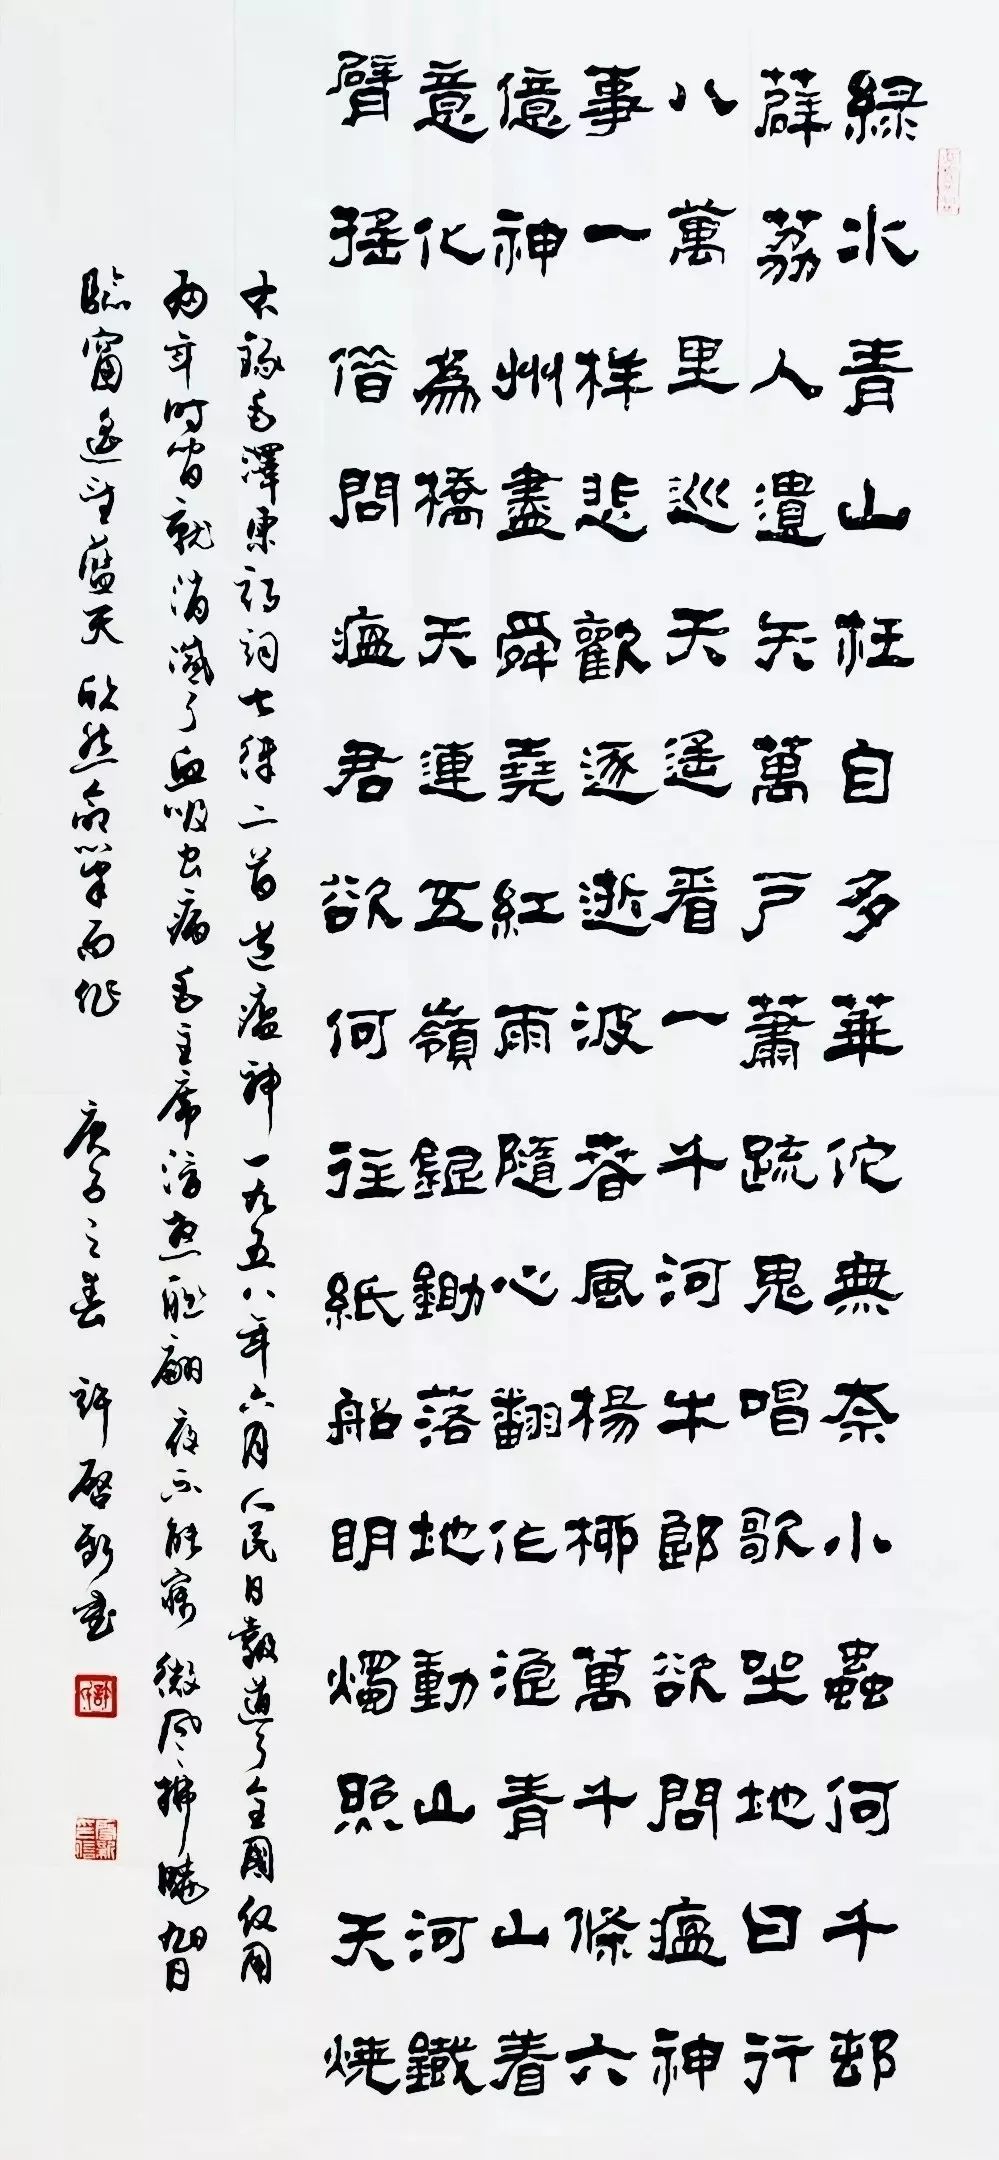 綠水青山枉自多華佗無奈小蟲何千邨
薜荔人遺矢萬戶蕭疏鬼唱歌坐地日行
八萬里巡天遙看一千河牛郎欲問瘟神
事一樣悲歡逐逝波春風楊柳萬千條六
億神州盡舜堯紅雨隨心翻作浪青山着
意化為橋天連五嶺銀鋤落地動山河鐵
臂搖借問瘟君欲何往紙船明燭照天燒
右錄毛澤東詩詞七律二首送瘟神一九五八年六月人民日報道了全國仅用
两年时间就消滅了血吸虫病毛主席浮想联翩夜不能寐微风拂曉旭日
臨窗遙望蓝天欣然命筆而作 庚子之春 許啓新書